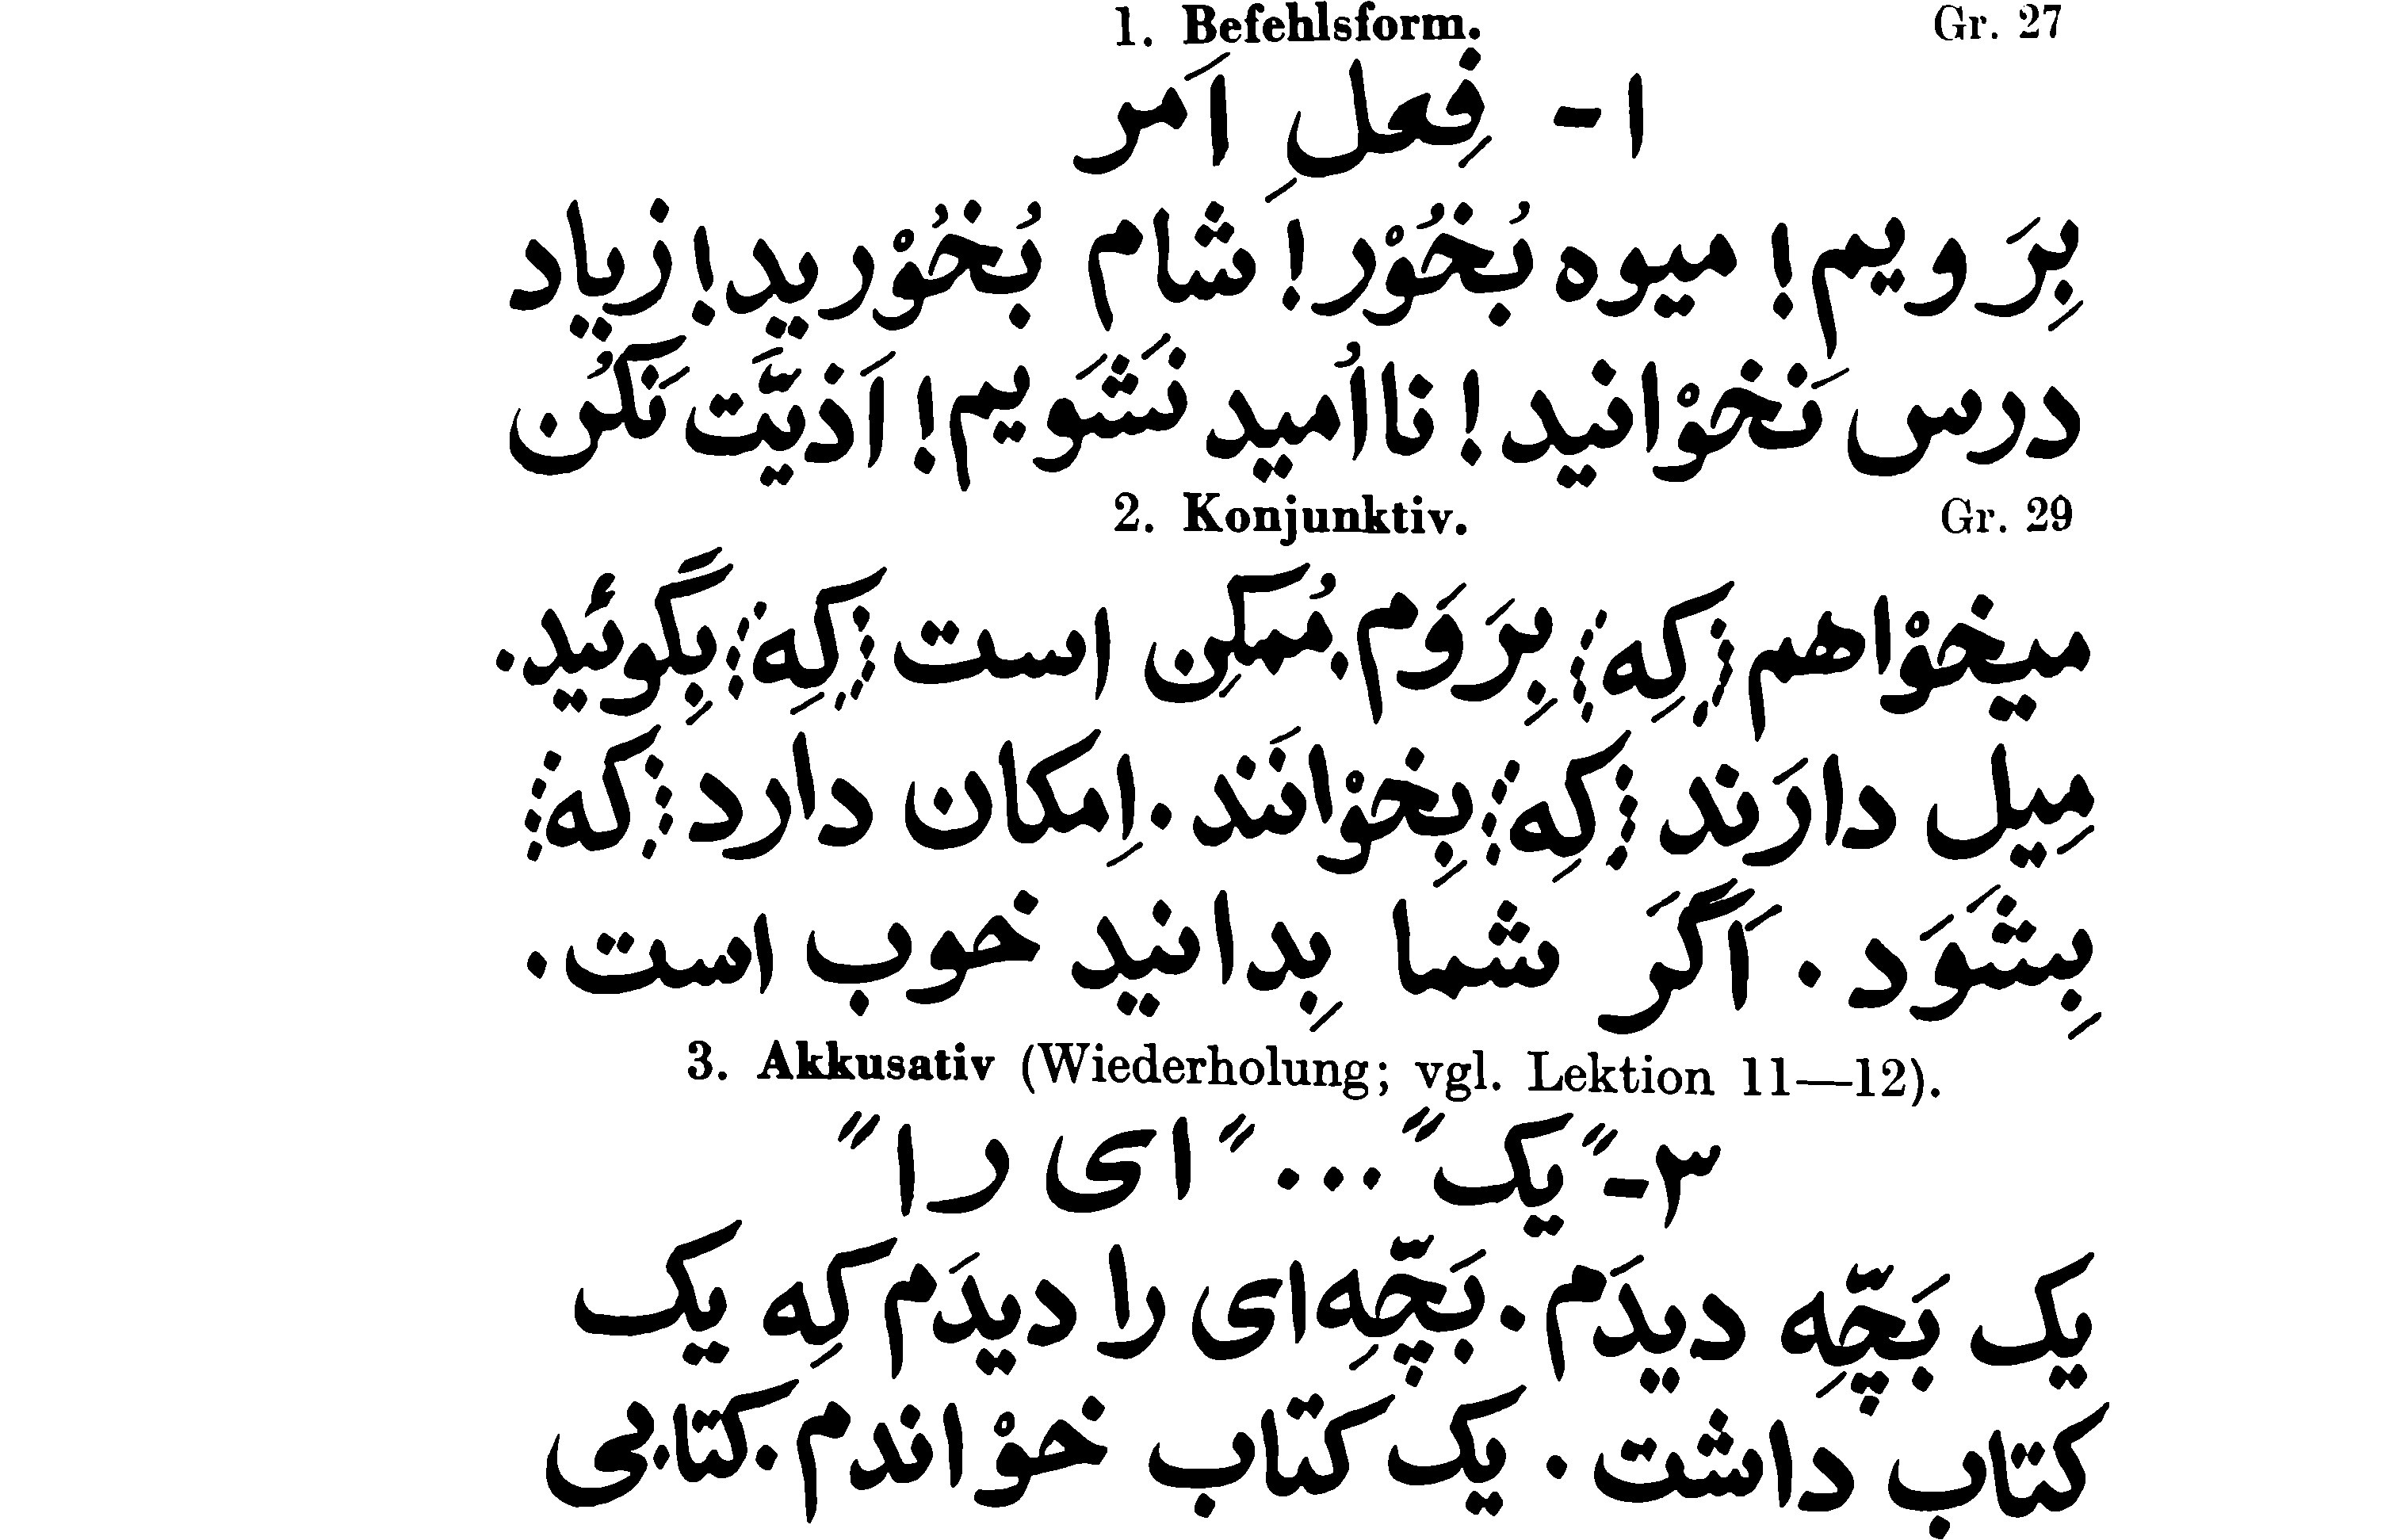 1. Befehlsform. Gr. 27
١- فِعلِ اَمر
بِرَویم! میوه بُخُوْر! شام بُخُوْرید! زیاد
درس نَخوْانید! نااُمید نَشَویم! اَذیَّت نَکُن
2. Konjunktiv. Gr. 29
میخوْاهم کِه بِرَوَم. مُمکِن است کِه بِگوئید.
مِیل دارَند کِه بِخوْانَند. اِمکان دارد که
بِشَوَد. اَگَر شما بِدانید خوب است.
3. Akkusativ (Wiederholung; vgl. Lektion 11—12).
٣- ”یک“ ... ”ای را“
یک بَچّهِ دیدَم. بَچّهِ‌ای را دیدَم کِه یک
کتاب داشت. یک کتاب خوْاندم. کتابی